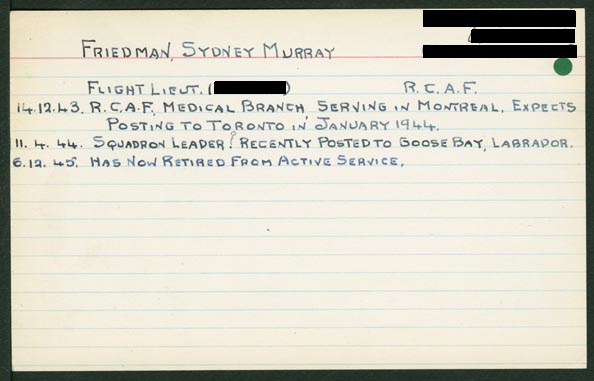 FRIEDMAN, SYDNEY MURRAY
FLIGHT LIEUT. ( ) R.C.A.F.
14.12.43. R.C.A.F. MEDICAL BRANCH, SERVING IN MONTREAL. EXPECTS
POSTING TO TORONTO IN JANUARY 1944.
11. 4. 44. SQUADRON LEADER? RECENTLY POSTED TO GOOSE BAY, LABRADOR.
6.12. 45. HAS NOW RETIRED FROM ACTIVE SERVICE.